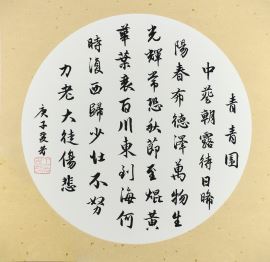 青青園
中葵朝露待日晞
陽春布德澤萬物生
光輝常恐秋節至焜黃
華葉衰百川東到海何
時復西歸少壯不努
力老大徒傷悲
庚子夏